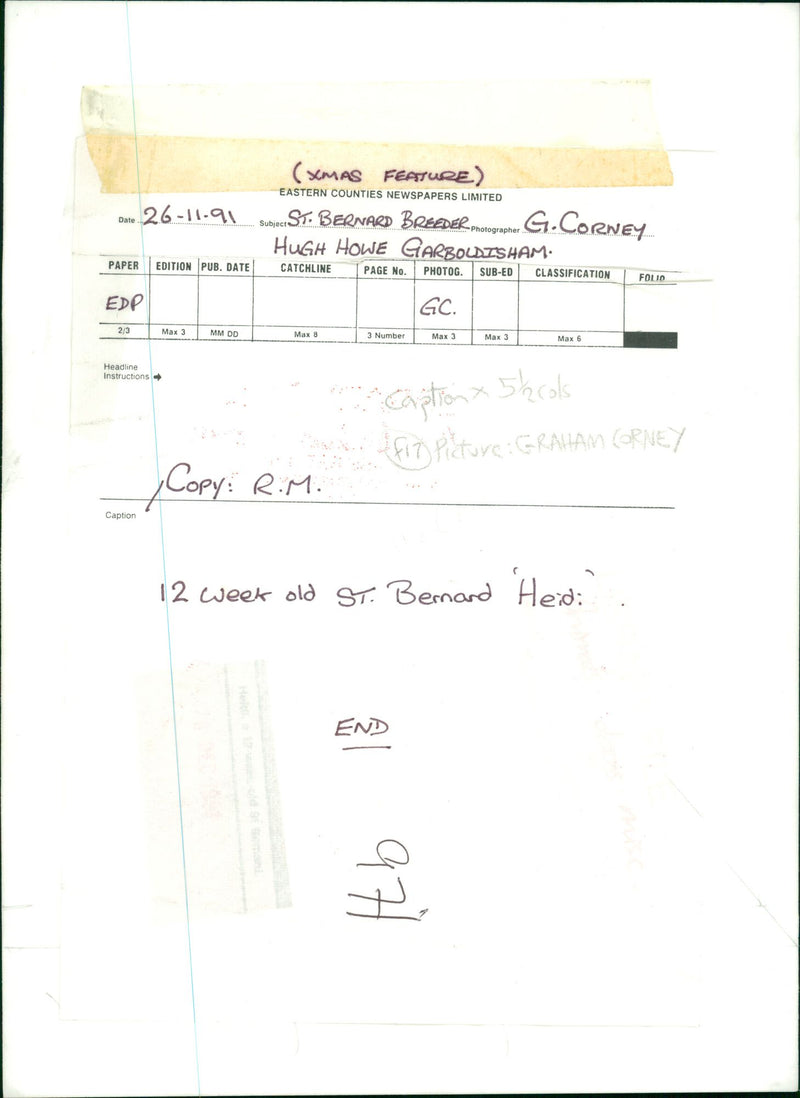 (XMAS FEATURE)
EASTERN COUNTIES NEWSPAPERS LIMITED
Date 26-11-91 Subject ST. BERNARD BREEDER Photographer G. CORNEY
HUGH HOWE GARBOLDISHAM.
PAPER EDITION PUB. DATE CATCHLINE PAGE No. PHOTOG. SUB-ED CLASSIFICATION FOLIO
EDP GC.
2/3 Max 3 MM DD Max 8 3 Number Max 3 Max 3 Max 6
Headline
Instructions
Caption x 5½ cols
Picture: GRAHAM CORNEY
Copy: R.M.
Caption
12 week old ST. Bernard 'Heidi'.
Heidi, a 12 week old St Bernard.
END